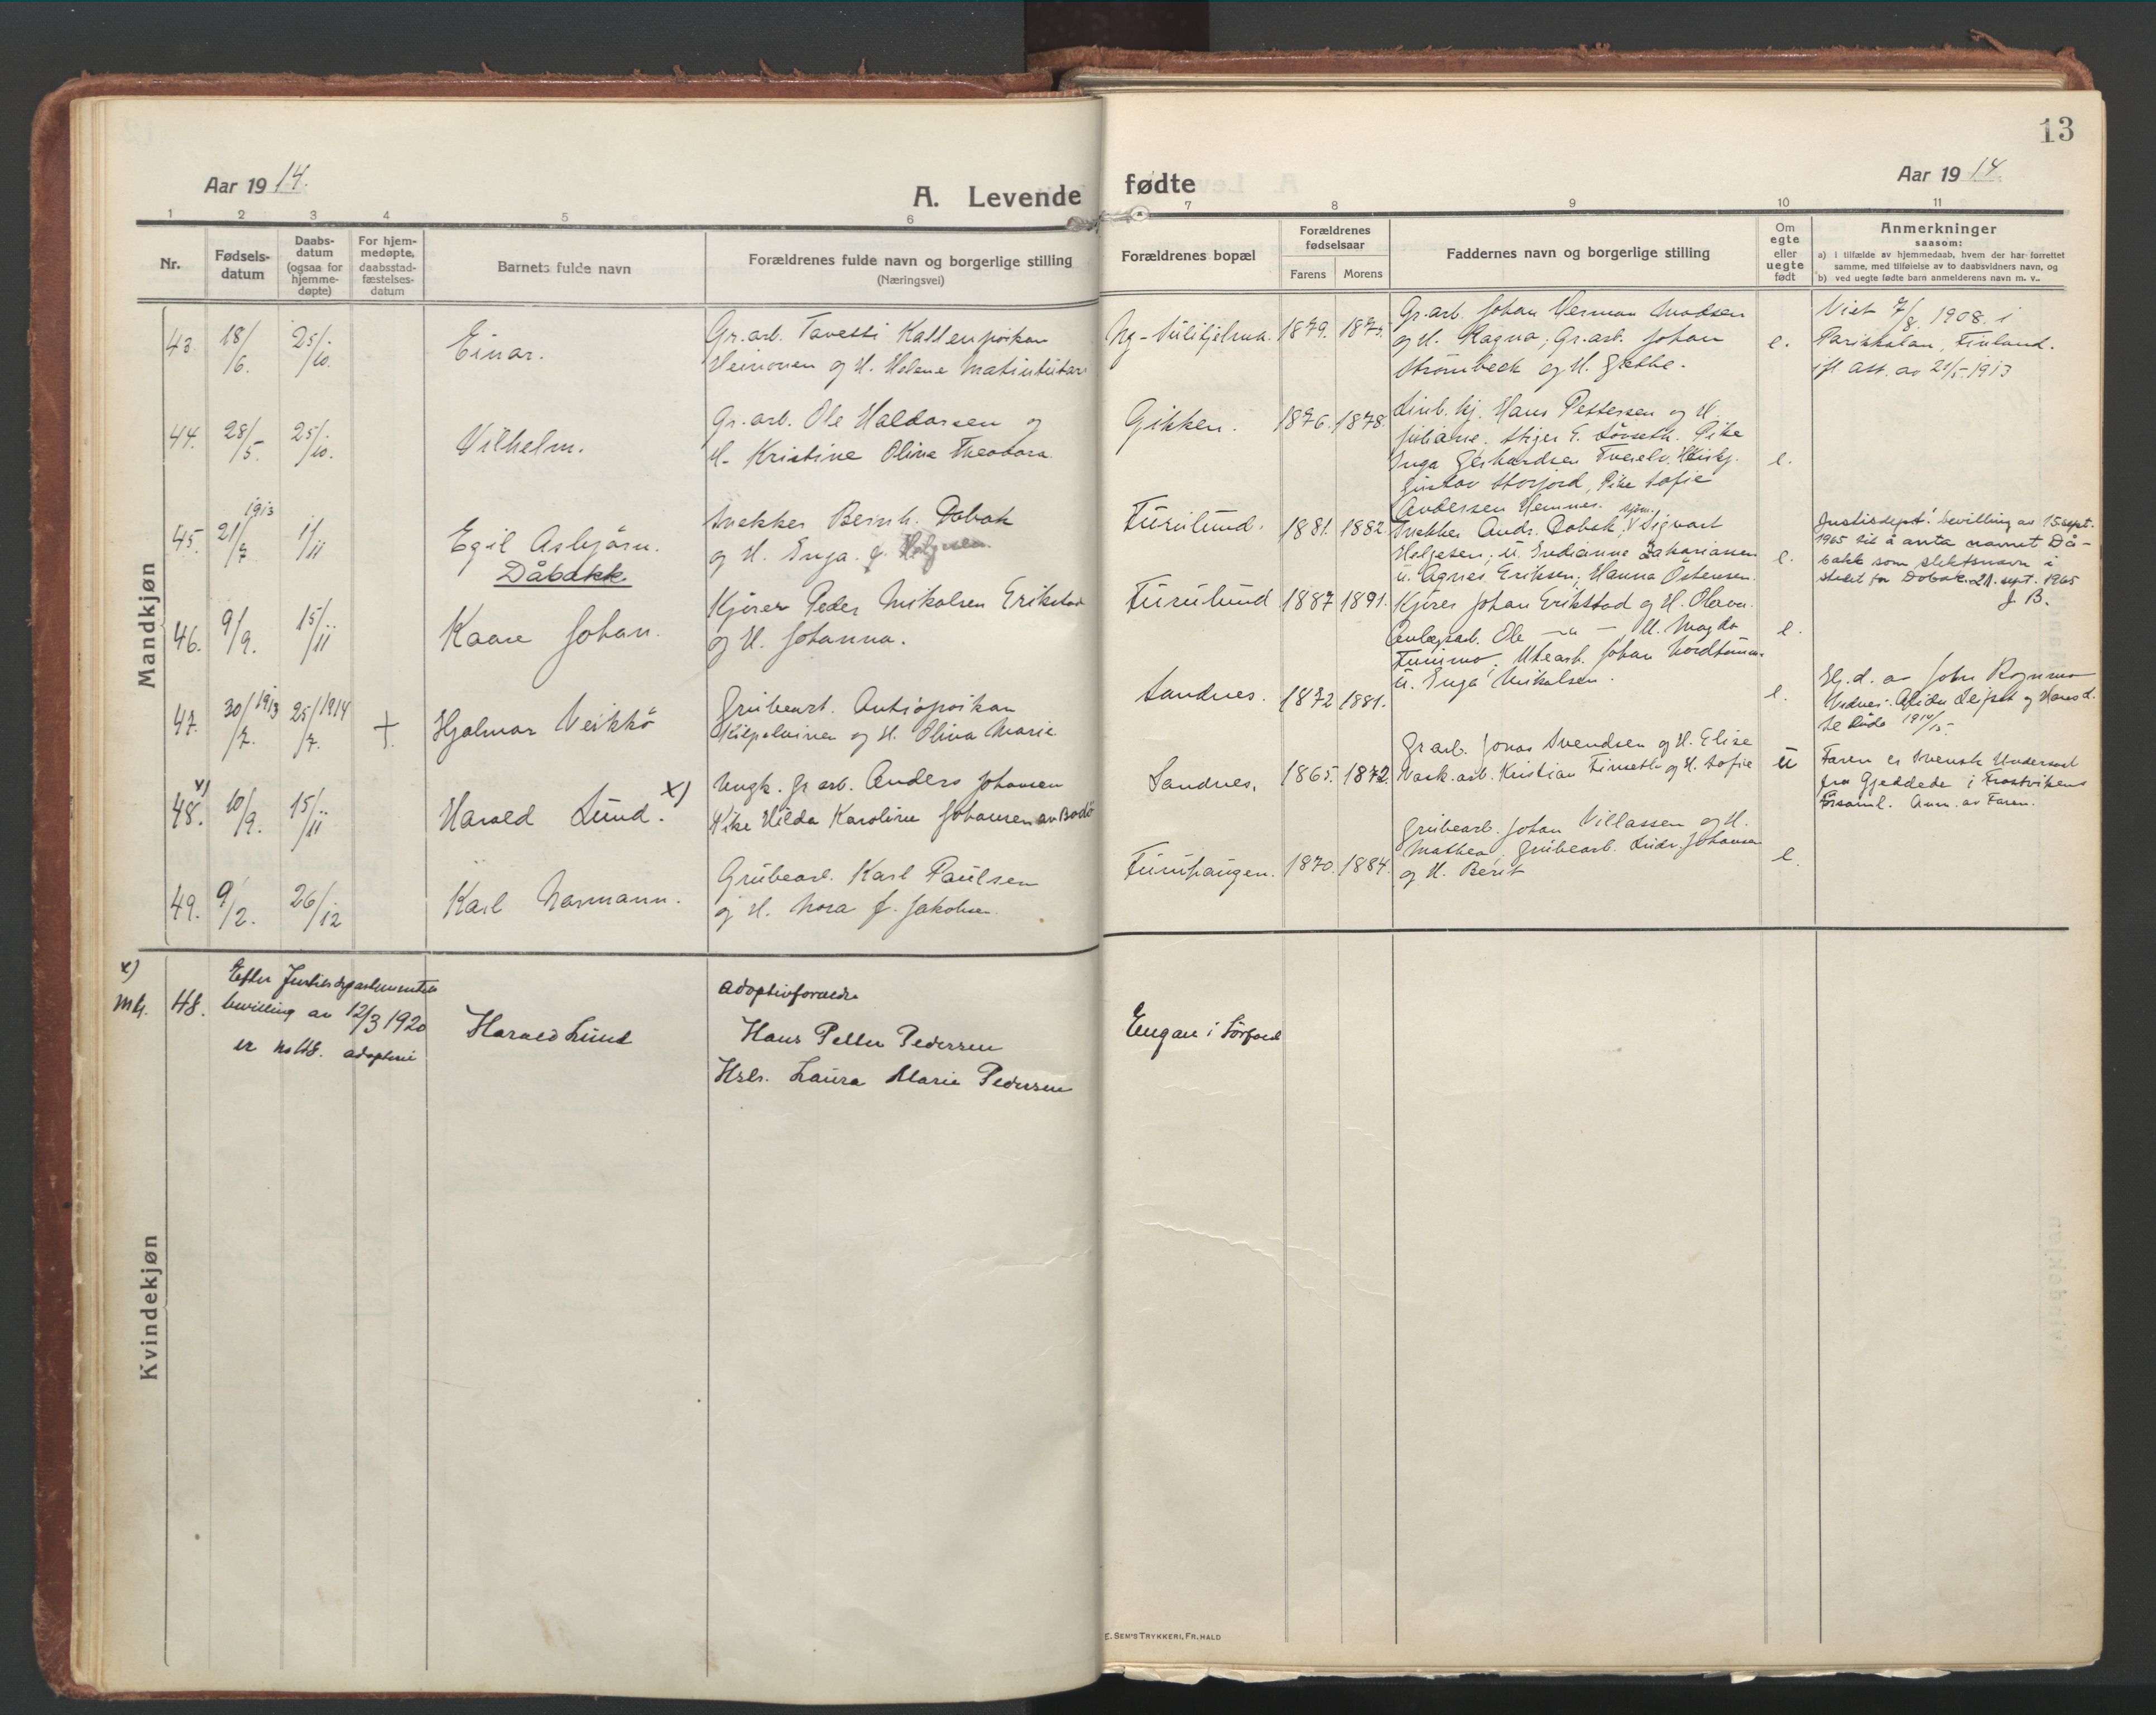 13
Aar 1914.
A. Levende fødte
Aar 1914.
1 2 3 4 5 6 7 8 9 10 11
Nr.
Fødsels-
datum
Daabs-
datum
(ogsaa for
hjemme-
døpte)
For hjem-
medøpte,
daabsstad-
fæstelses-
datum
Barnets fulde navn
Forældrenes fulde navn og borgerlige stilling
(Næringsvei)
Forældrenes bopæl
Forældrenes
fødselsaar
Farens Morens
Faddernes navn og borgerlige stilling
Om
egte
eller
uegte
født
Anmerkninger
saasom:
a) i tilfælde av hjemmedaab, hvem der har forrettet
samme, med tilføielse av to daabsvidners navn, og
b) ved uegte fødte barn anmelderens navn m. v..
Mandkjøn
43. 18/6. 25/10. Einar.
Gr.arb. Tavetti Kallenpoikan
Heinonen og H. Helene
Ny-Sulitjelma. 1879.
Gr.arb. Johan Herman Madsen
og H. Ragna; Gr.arb. Johan
Strømbeck og H. Grethe.
e.
Viet 7/8 1908. i
Parikkalan, Finland.
ifl. att. av 21/5. 1913
44. 28/5. 25/10. Vilhelm.
Gr.arb. Ole Haldorsen og
H. Kristine Oline Theodora.
Gikken. 1876. 1878.
Hans Pettersen og H.
Juliane. Stiger E. Pike
Inga Gerhardsen
Gustav Storjord, Pike Sofie
Andersen Hemnes.
e.
45. 21/7. 1913 1/11 Egil Asbjörn.
Dåbakk.
Snekker Bernh. Dobak
og H. Inga
Furulund. 1881. 1882.
Snekker Andr. Dobak, Sigvart
Helgesen; u. Indianne Zakariassen
u. Agnes Eriksen; Hanna Östensen.
e.
Justisdept.' bevilling av 15 sept.
1965 til å anta navnet Då-
bakk som slektsnavn i
stedet for Dobak. 21. sept. 1965
J. B.
46. 9/9. 15/11 Kaare Johan.
Kjører Peder Mikalsen Erikstad
og H. Johanna.
Furulund 1887 1891.
Kjører Johan Erikstad og H. Olava.
Anlægsarb. Ole –"– H. Magda
Furumo; Johan
u. Inga Mikalsen.
e.
47. 30/7. 1913 25/7. 1914 † Hjalmar Veikkö
Grubearb. Antiopoikan
Kilpelainen og H. Olina Marie
Sandnes. 1872 1881.
e.
Hj.d. av John Rognmo
48. x) 10/9. 15/11 Harald Lund. x)
Ungk. gr.arb. Anders Johansen
Pike Hilda Karoline Johansen av Bodö
Sandnes. 1865. 1872.
Gr.arb. Jonas Svendsen og H. Elise
Vask.arb. Kristian og H. Sofie
u
Faren er svensk Undersaat
fra Gjeddede i Frostvikens
Församl. Anm. av Faren.
49. 9/2. 26/12 Karl Normann.
Grubearb. Karl Paulsen
og H. Nora f. Jakobsen.
Furuhaugen. 1870. 1884.
Grubearb. Johan Villassen og H.
Mathea; Grubearb. Ludv. Johansen
og H. Berit
e.
Kvindekjøn
x)
48.
Efter Justisdepartementets
bevilling av 12/3 1920
er No 48. adopteret
Harald Lund
Adoptivforældre
Hans Petter Pedersen
Hstr. Laura Marie Pedersen
Engan i Sörfold
E. SEM'S TRYKKERI, FR.HALD